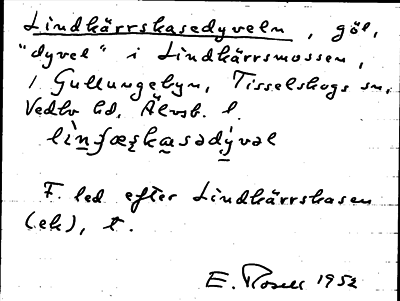 Lindkärrskasedyveln, göl,
"dyvel" i Lindkärrsmossen,
i Gullungebyn, Tisselskogs sn,
Vedbo hd, Älvsb. l.
F. led efter Lindkärrskasen
(ek), t.
E. Rosell 1952